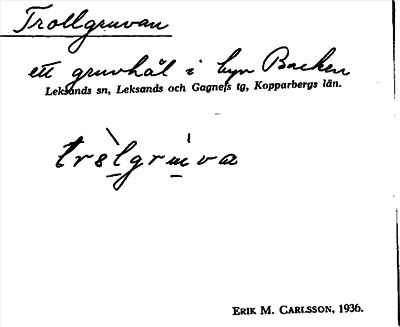 Trollgruvan
ett gruvhål i byn Backen
Leksands sn, Leksands och Gagnefs tg, Kopparbergs län.
ERIK M. CARLSSON, 1936.